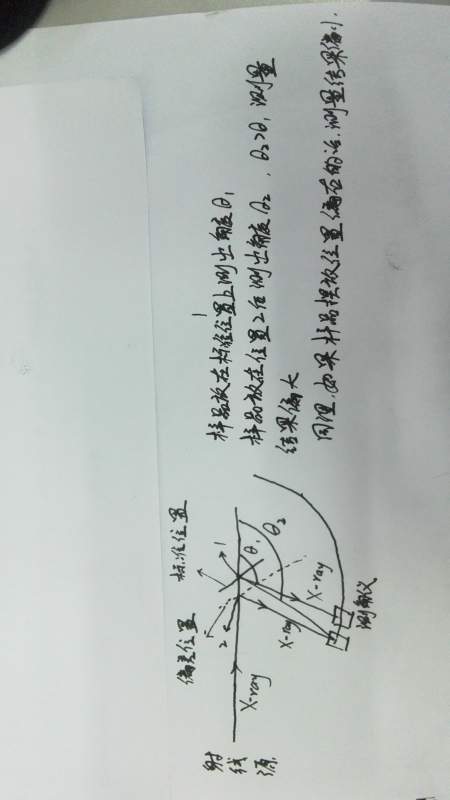 样品放在标准位置1上测出角度θ1
样品放在位置2后测出角度θ2，θ2>θ1，测量
结果偏大
同理，如果样品摆放位置偏右的话，测量结果偏小.
偏差位置
标准位置
2
1
θ1
θ2
射线源
X-ray
X-ray
X-ray
测角仪